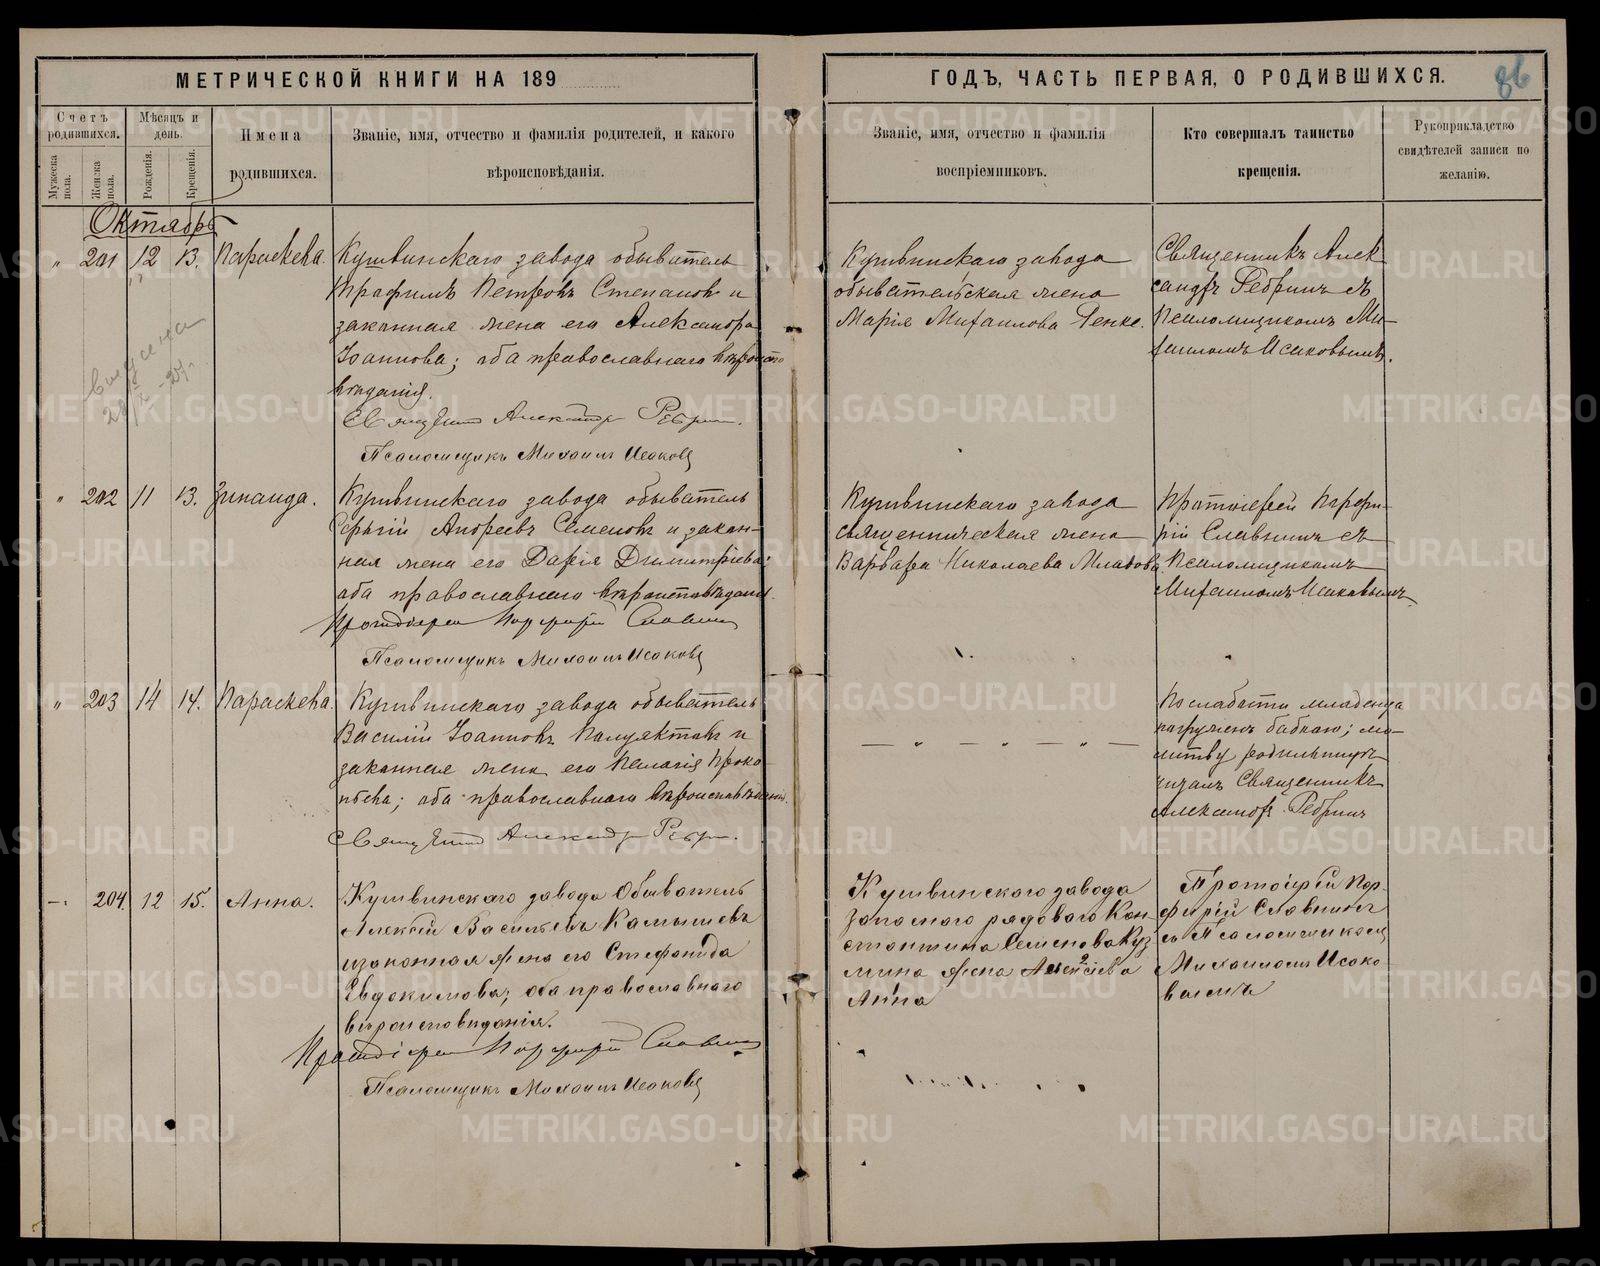 МЕТРИЧЕСКОЙ КНИГИ НА 189
ГОДЪ, ЧАСТЬ ПЕРВАЯ, О РОДИВШИХСЯ.
86
Счетъ родившихся.
Мужеска пола.
Женска пола.
Мѣсяцъ и день.
Рожденія.
Крещенія.
Имена родившихся.
Званіе, имя, отчество и фамилія родителей, и какого
вѣроисповѣданія.
Званіе, имя, отчество и фамилія
воспріемниковъ.
Кто совершалъ таинство
крещенія.
Рукоприкладство
свидѣтелей записи по
желанію.
Октябрь
" 201 12 13. Параскева.
Кушвинскаго завода обыватель
Трофимъ Петровъ Степановъ и
законная жена его Александра
Іоаннова; оба православнаго вѣроиспо
вѣданія.
Священникъ Александръ Ребринъ.
Псаломщикъ Михаилъ Исаковъ
Кушвинскаго завода
обывательская жена
Марія Михаилова
Священникъ Алек
сандръ Ребринъ съ
Псаломщикомъ Ми-
хаиломъ Исаковымъ.
" 202 11 13. Зинаида.
Кушвинскаго завода обыватель
Сергій Андреевъ Семеновъ и закон-
ная жена его Дарія Димитріева;
оба православнаго вѣроисповѣданія.
Протоіерей Порфирій Славнинъ
Псаломщикъ Михаилъ Исаковъ
Кушвинскаго завода
священническая жена
Варвара Николаева
Протоіерей Порфи-
рій Славнинъ съ
Псаломщикомъ
Михаиломъ Исаковымъ.
" 203 14 14. Параскева.
Кушвинскаго завода обыватель
Василій Іоанновъ Полуяктовъ и
законная жена его Пелагія Проко-
пьева; оба православнаго вѣроисповѣданія.
Священникъ Александръ Ребринъ.
— " — " — " —
По слабости младенца
погруженъ бабкою; мо-
литву родильницѣ
читалъ Священникъ
Александръ Ребринъ
—. 204. 12 15. Анна.
Кушвинскаго завода Обыватель
Алексѣй Васильевъ Камышевъ
и законная жена его Стефанида
Евдокимова, оба православнаго
вѣроисповѣданія.
Протоіерей Порфирій Славнинъ
Псаломщикъ Михаилъ Исаковъ
Кушвинского завода
запасного рядового Кон-
стантина Семенова Куз
мина жена Алексіева
Анна
Протоіерей Пор-
фирій Славнинъ
съ Псаломщикомъ
Михаиломъ Исако
вымъ
METRIKI.GASO-URAL.RU